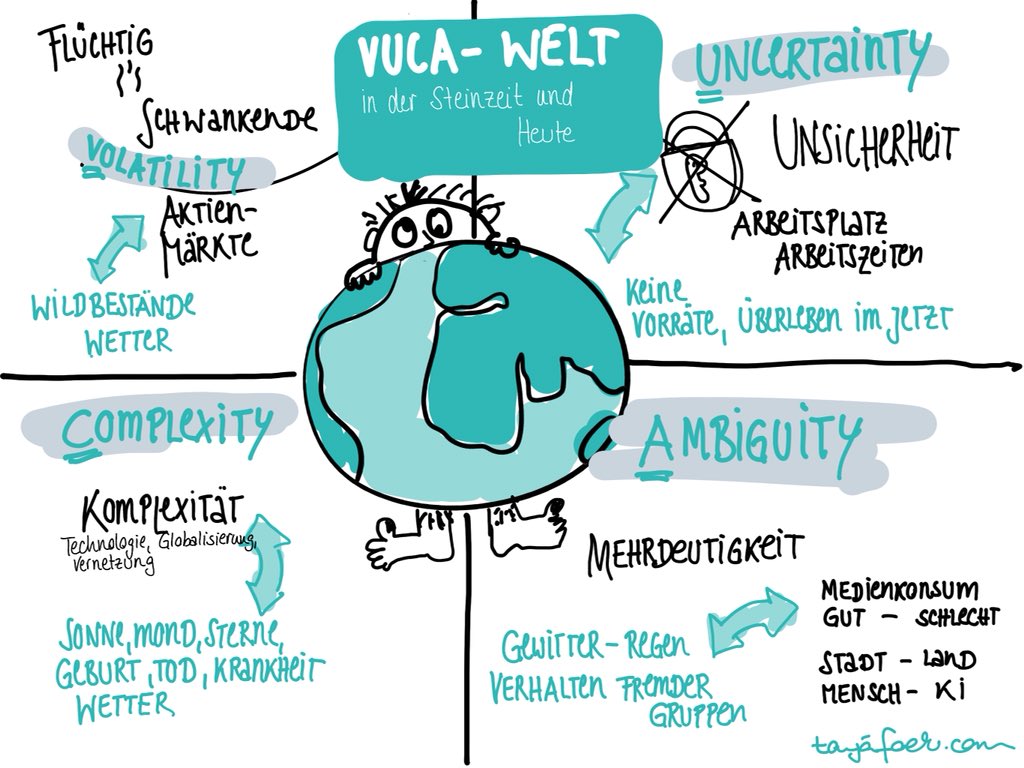 VUCA- WELT
in der Steinzeit und
Heute
FLÜCHTIG
SCHWANKENDE
VOLATILITY
AKTIEN-
MÄRKTE
WILDBESTÄNDE
WETTER
UNCERTAINTY
UNSICHERHEIT
ARBEITSPLATZ
ARBEITSZEITEN
KEINE
VORRÄTE, ÜBERLEBEN IM JETZT
COMPLEXITY
KOMPLEXITÄT
Technologie, Globalisierung,
Vernetzung
SONNE, MOND, STERNE,
GEBURT, TOD, KRANKHEIT
WETTER
AMBIGUITY
MEHRDEUTIGKEIT
MEDIENKONSUM
GUT - SCHLECHT
STADT - LAND
MENSCH - KI
GEWITTER - REGEN
VERHALTEN FREMDER
GRUPPEN